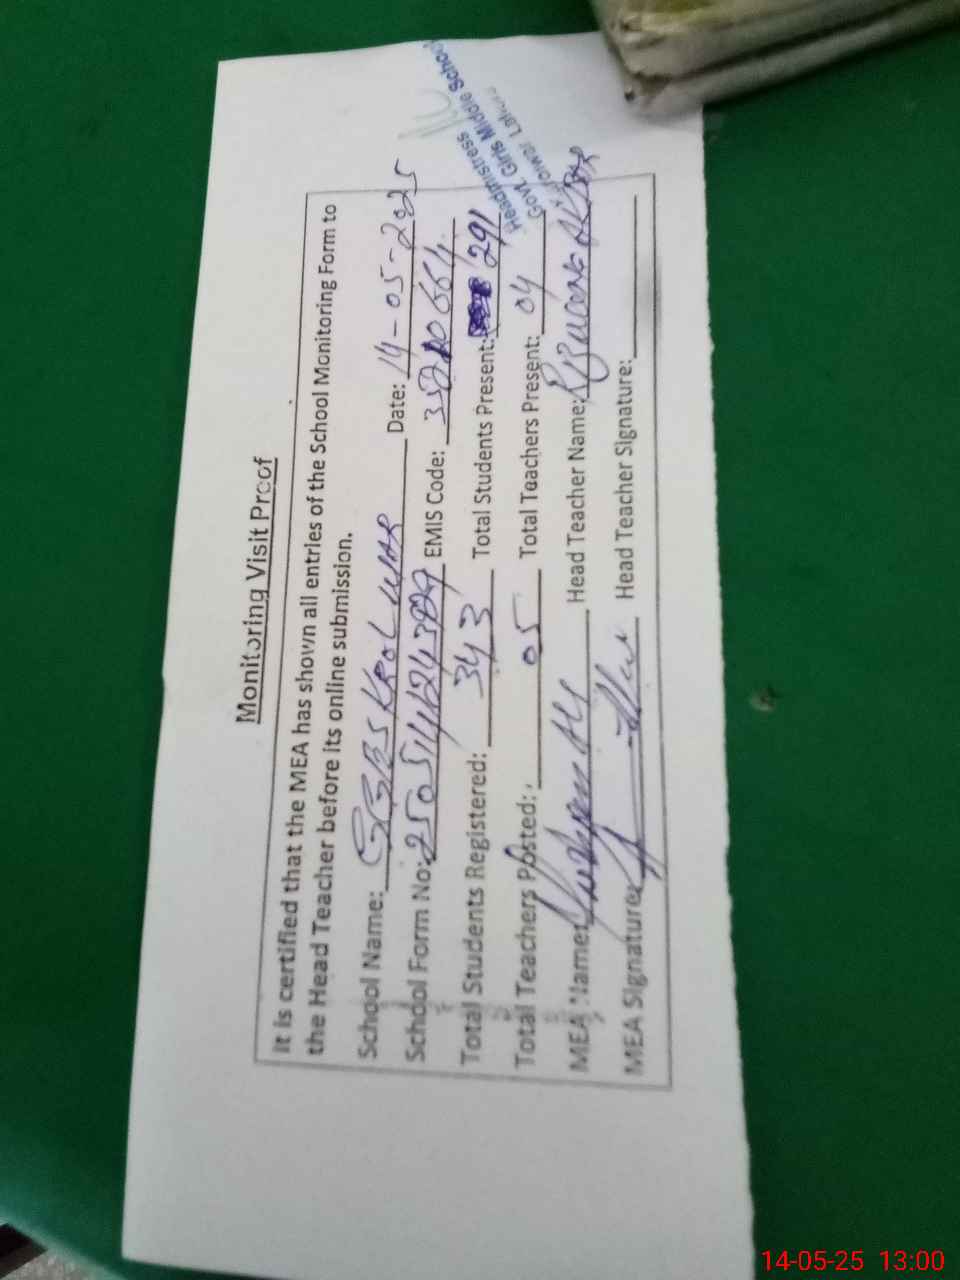 Monitoring Visit Proof
It is certified that the MEA has shown all entries of the School Monitoring Form to
the Head Teacher before its online submission.
School Name: Date: 14-05-2025
School Form No: EMIS Code:
Total Students Registered: 343 Total Students Present: 291
Total Teachers Posted: 05 Total Teachers Present: 04
MEA Name: Head Teacher Name:
MEA Signature: Head Teacher Signature:
Headmistress
Govt. Girls Middle School
Lahore
14-05-25 13:00